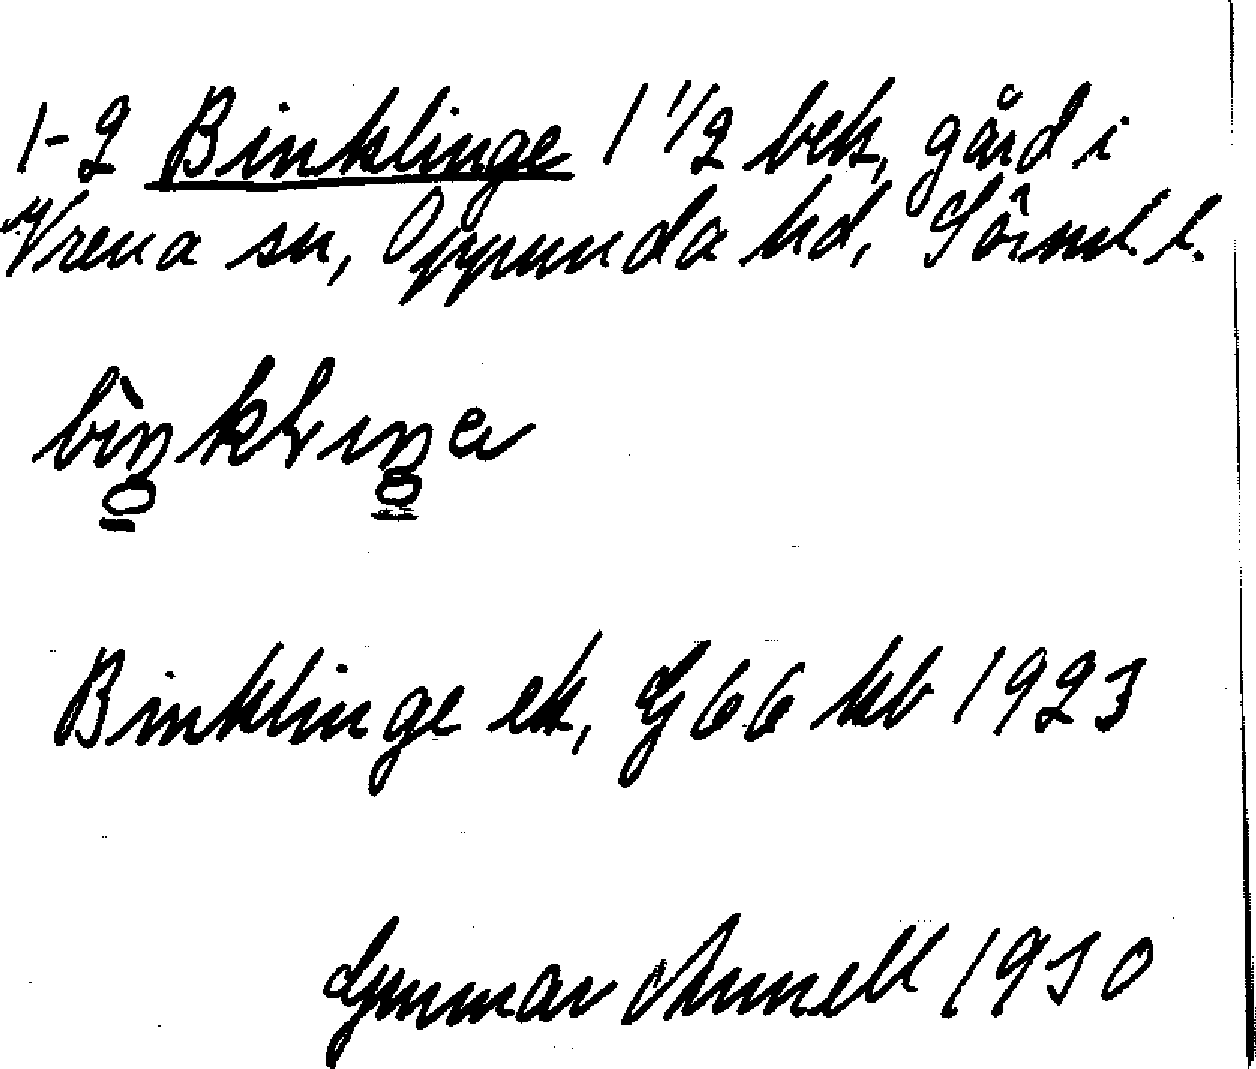 1-2 Binklinge 1 1/2 bek, gård i
Vrena sn, Oppunda hd, Sörml. l.
Binklinge ek, G 66 kb 1923
Gunnar Annell 1930